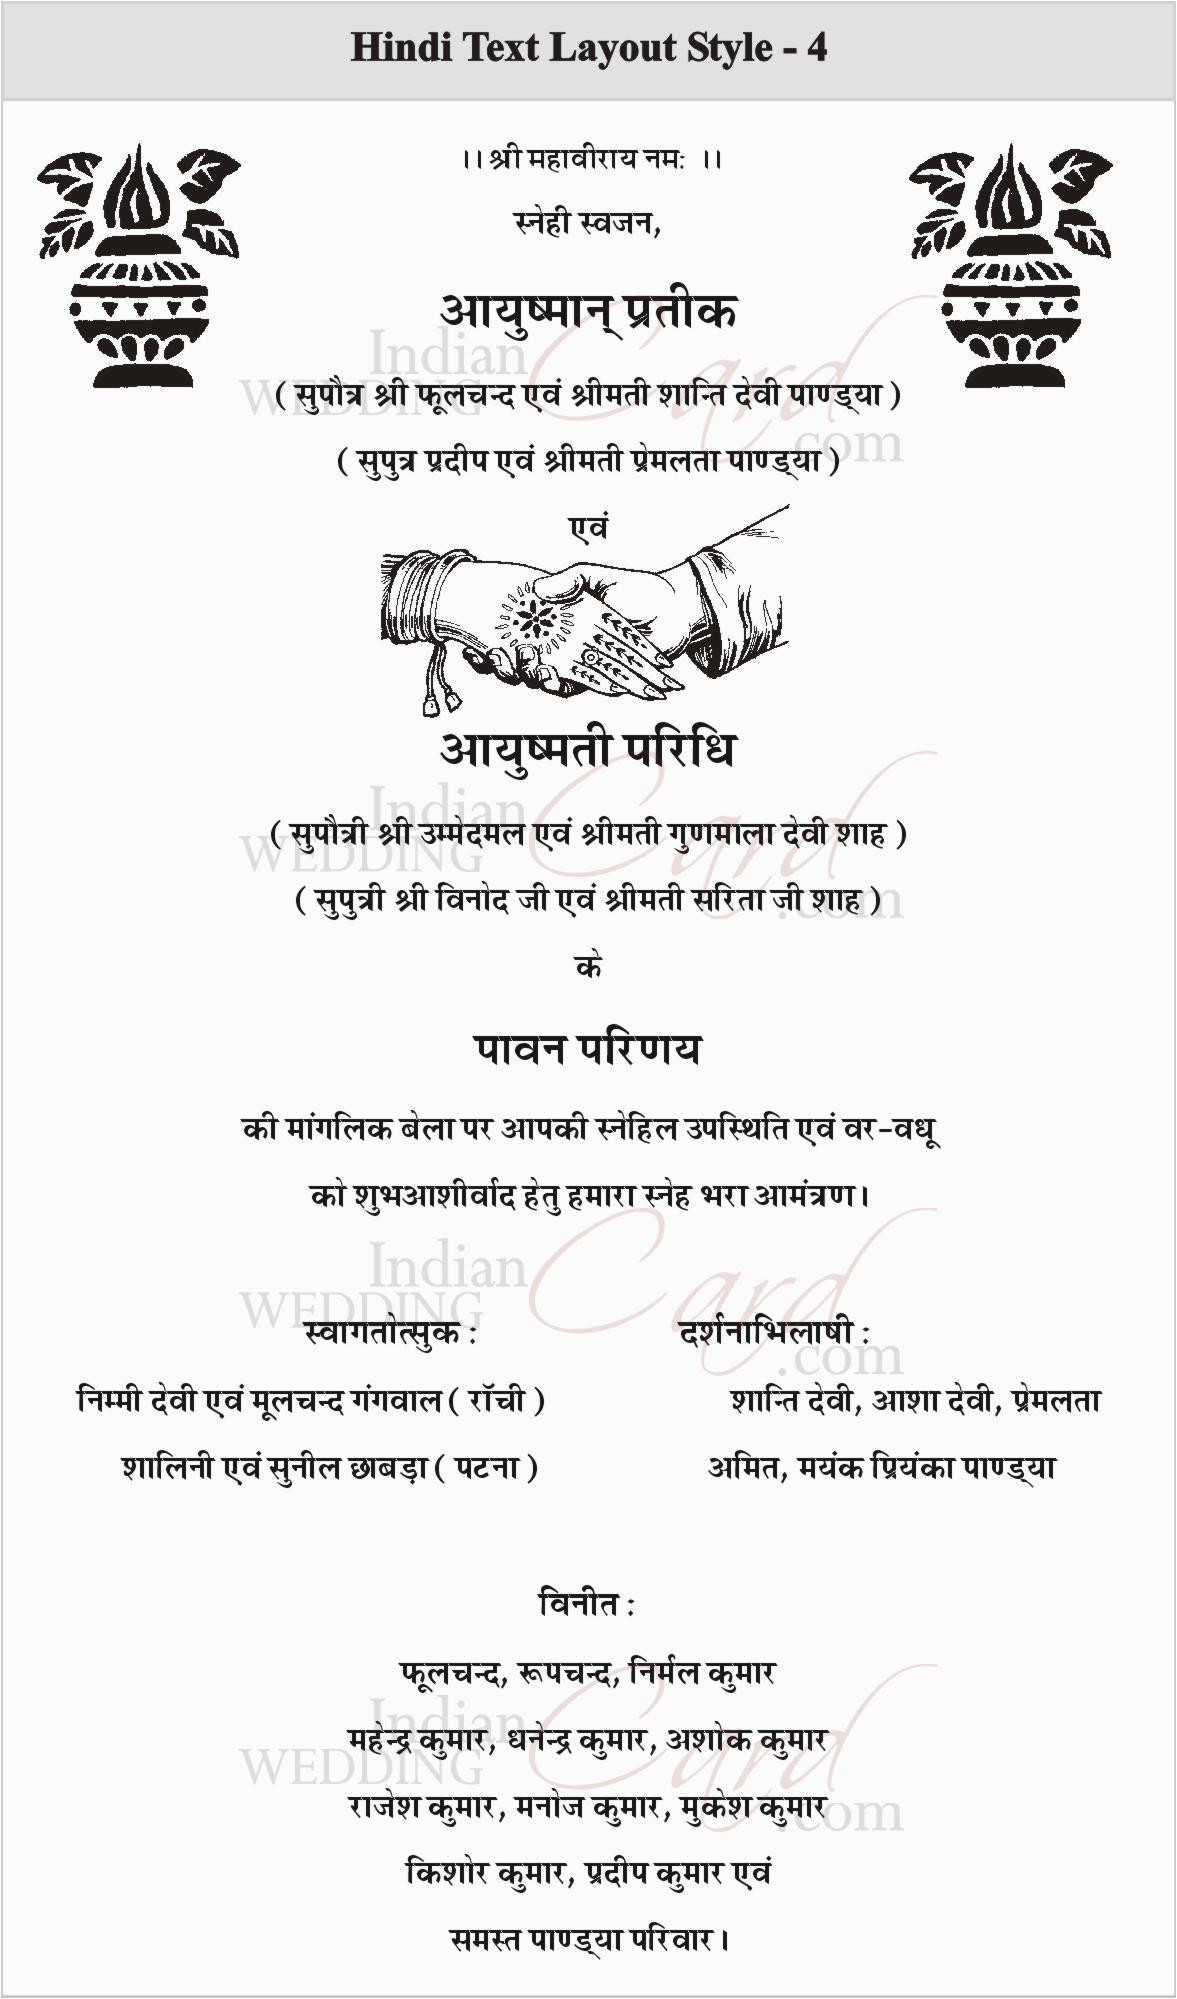 Hindi Text Layout Style - 4
।। श्री महावीराय नमः ।।
स्नेही स्वजन,
आयुष्मान् प्रतीक
( सुपौत्र श्री फूलचन्द एवं श्रीमती शान्ति देवी पाण्ड्या )
( सुपुत्र प्रदीप एवं श्रीमती प्रेमलता पाण्ड्या )
एवं
आयुष्मती परिधि
( सुपौत्री श्री उम्मेदमल एवं श्रीमती गुणमाला देवी शाह )
( सुपुत्री श्री विनोद जी एवं श्रीमती सरिता जी शाह )
के
पावन परिणय
की मांगलिक बेला पर आपकी स्नेहिल उपस्थिति एवं वर-वधू
को शुभआशीर्वाद हेतु हमारा स्नेह भरा आमंत्रण।
स्वागतोत्सुक :
निम्मी देवी एवं मूलचन्द गंगवाल ( रॉची )
शालिनी एवं सुनील छाबड़ा ( पटना )
दर्शनाभिलाषी :
शान्ति देवी, आशा देवी, प्रेमलता
अमित, मयंक प्रियंका पाण्ड्या
विनीत :
फूलचन्द, रूपचन्द, निर्मल कुमार
महेन्द्र कुमार, धनेन्द्र कुमार, अशोक कुमार
राजेश कुमार, मनोज कुमार, मुकेश कुमार
किशोर कुमार, प्रदीप कुमार एवं
समस्त पाण्ड्या परिवार।
Indian
WEDDING Card
.com
Indian
WEDDING Card
.com
Indian
WEDDING Card
.com
Indian
WEDDING Card
.com